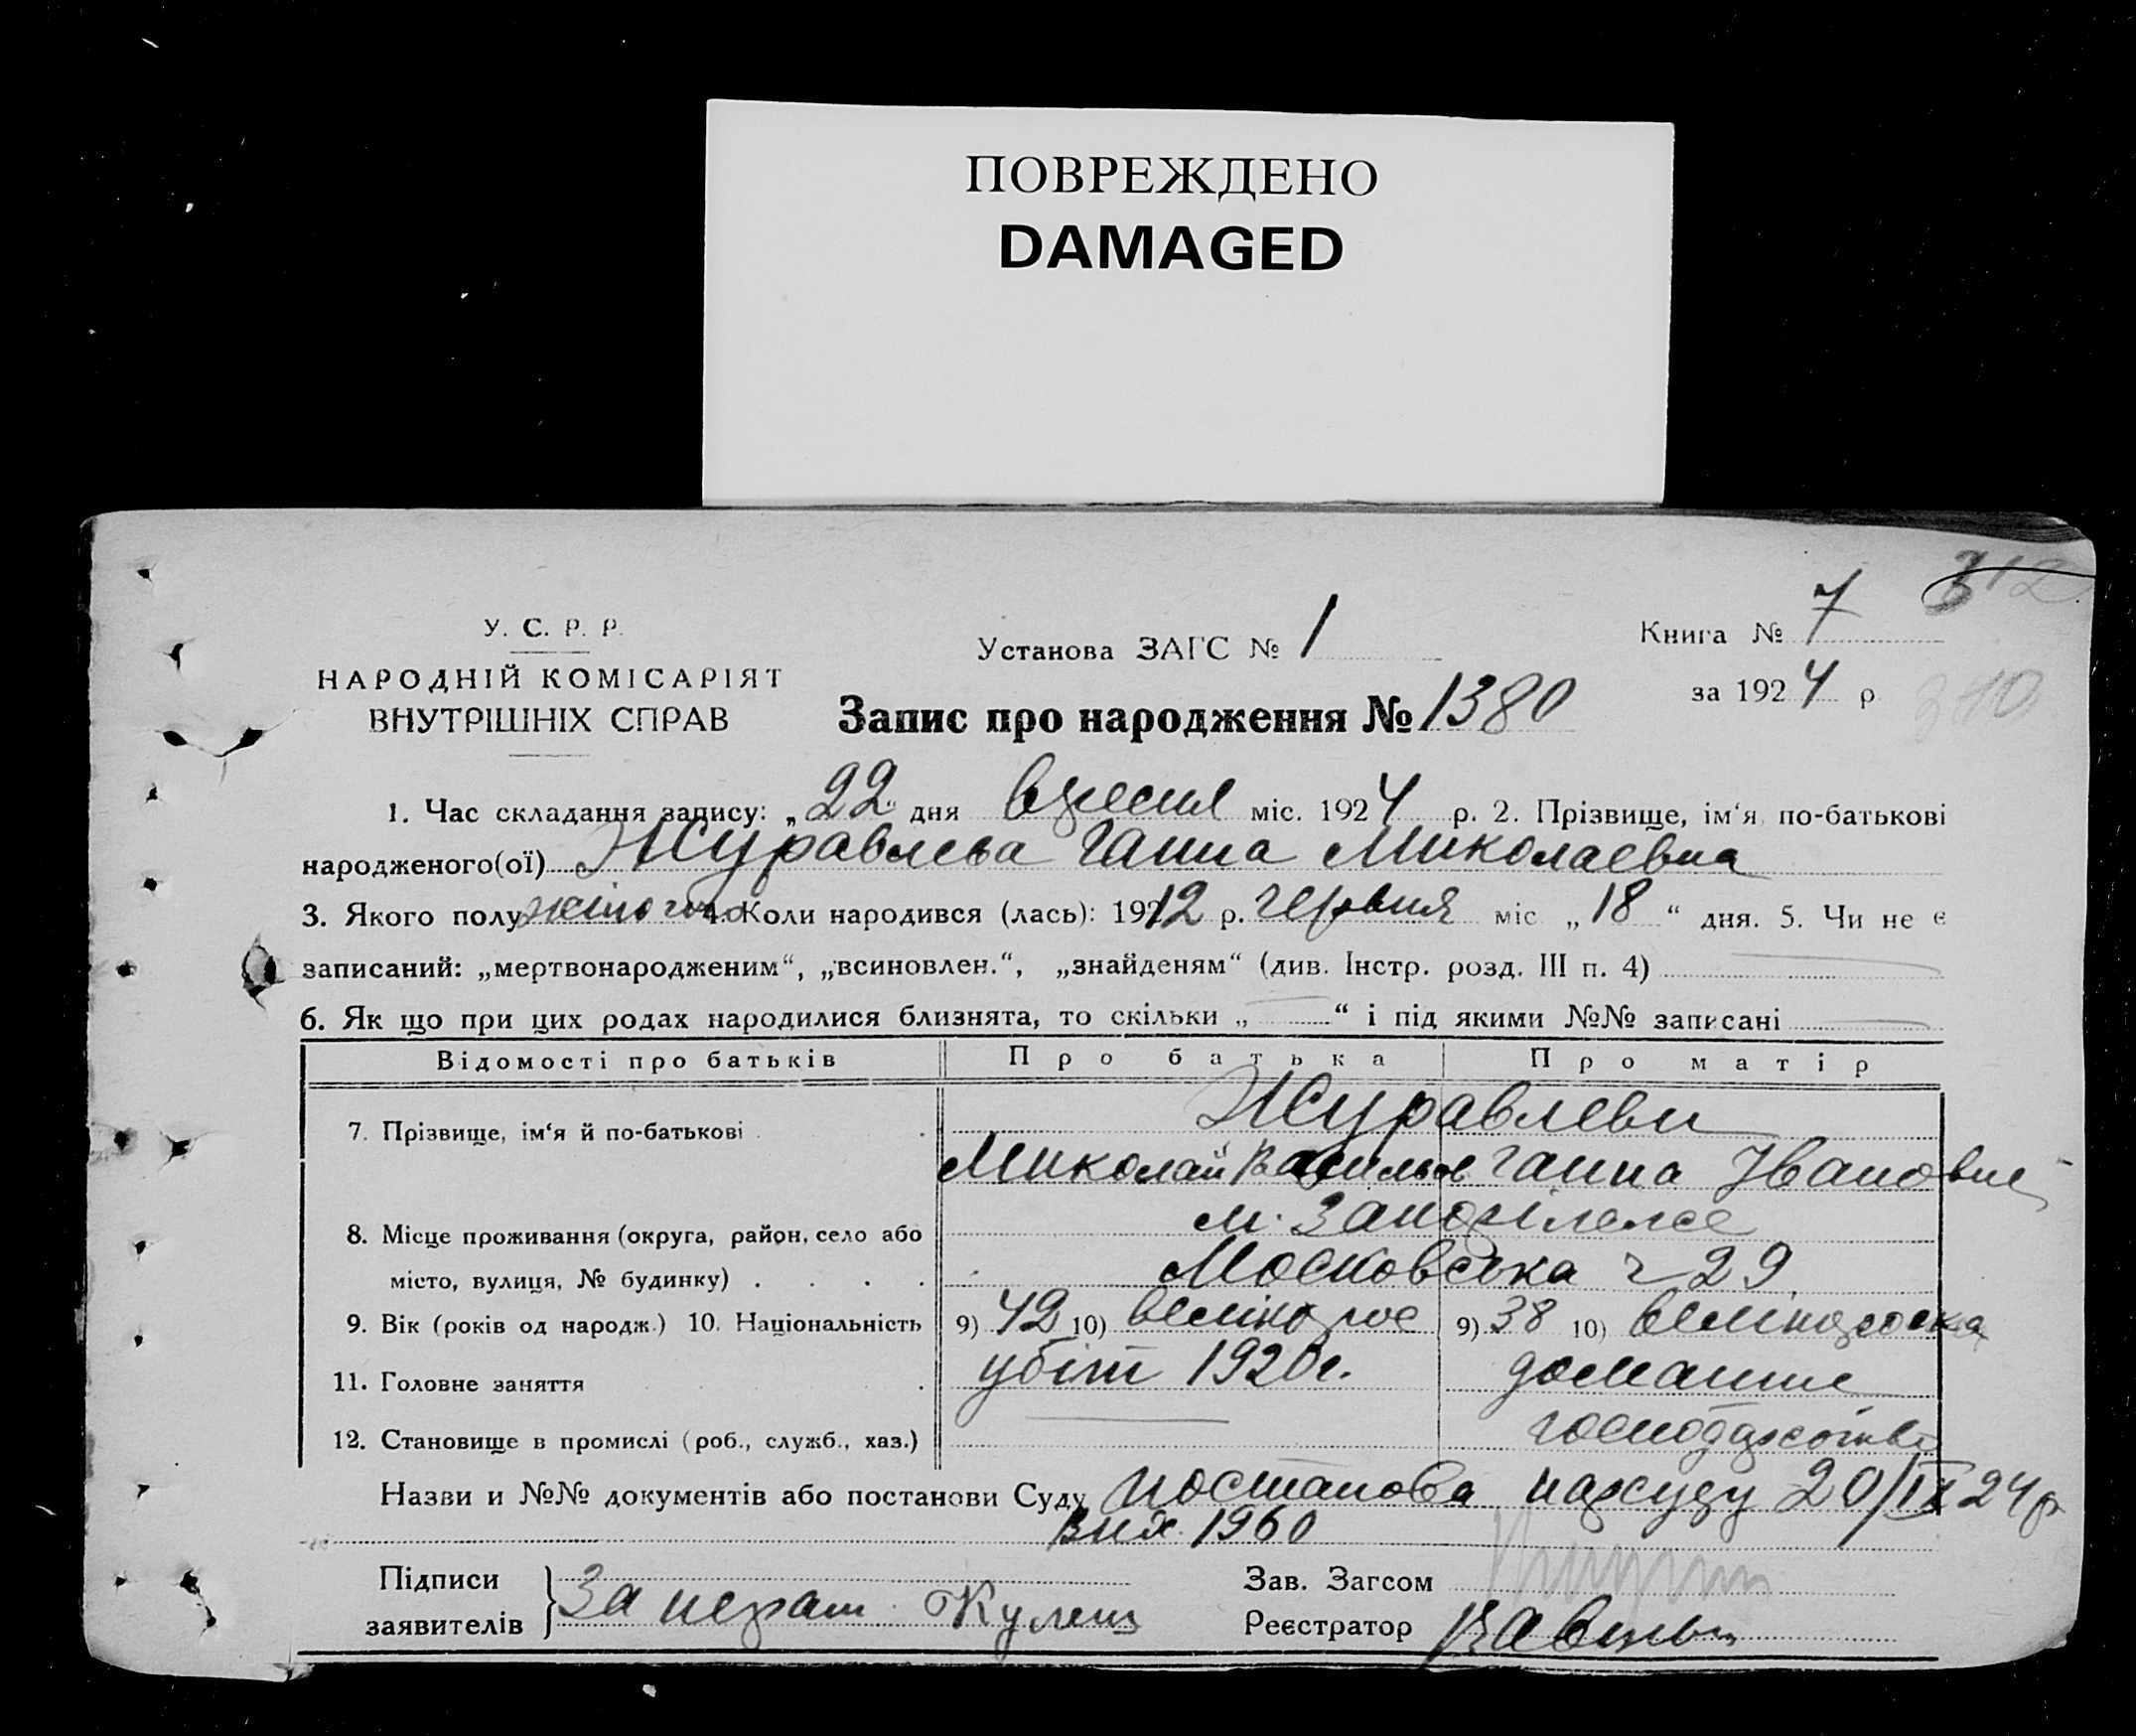 ПОВРЕЖДЕНО
DAMAGED
312
У. С. Р. Р.
НАРОДНІЙ КОМІСАРІЯТ
ВНУТРІШНІХ СПРАВ
Установа ЗАГС № 1
Книга № 7
за 1924 р
310
Запис про народження № 1380
1. Час складання запису: „22“ дня вересня міс. 1924 р. 2. Прізвище, ім‘я по-батькові
народженого(ої) Журавлева Ганна Миколаевна
3. Якого полу жіночого 4. Коли народився (лась): 1912 р. червня міс „18“ дня. 5. Чи не є
записаний: „мертвонародженим“, „всиновлен.“, „знайденям“ (див. Інстр. розд. III п. 4)
6. Як що при цих родах народилися близнята, то скільки „ “ і під якими №№ записані
Відомості про батьків Про батька Про матір
Журавлеви
7. Прізвище, ім‘я й по-батькові
Миколай Васильев Ганна Івановна
8. Місце проживання (округа, район, село або м.
місто, вулиця, № будинку) Московська 29
9. Вік (років од народж.) 10. Національність 9) 42 10) великорос 9) 38 10) великороска
11. Головне заняття убіт 1920 г. домашне
12. Становище в промислі (роб., служб., хаз.) господарство
Назви и №№ документів або постанови Суду постанова нарсуду 20/IX 24 р
вих. 1960
Підписи
заявителів За неграм. Кулеш
Зав. Загсом
Реєстратор